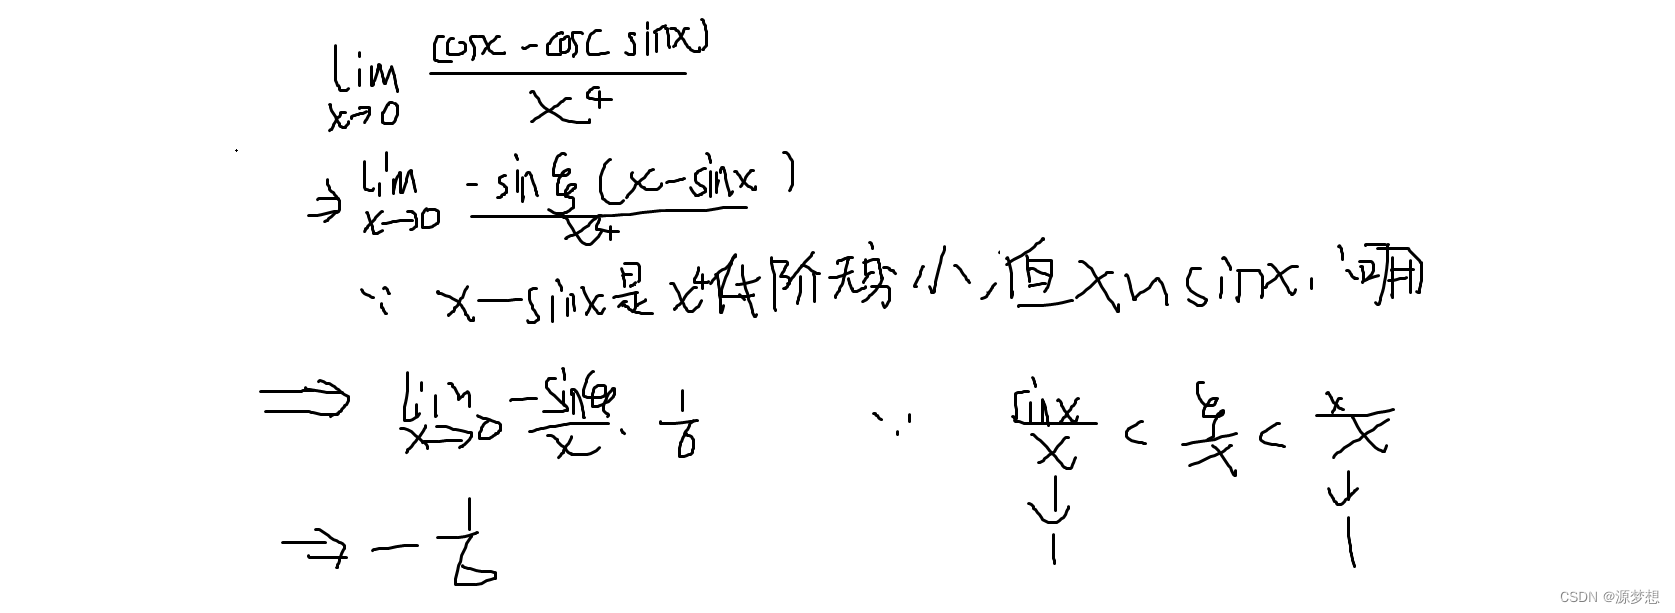 lim x→0 (cosx - cos(sinx)) / x^4
⇒ lim x→0 -sinξ(x-sinx) / x^4
∵ x-sinx是x^4低阶无穷小,但x~sinx,可用
⇒ lim x→0 -sinξ/x · 1/6 ∵ sinx/x < ξ/x < x/x
↓ ↓
⇒ -1/6 1 1
CSDN @源梦想